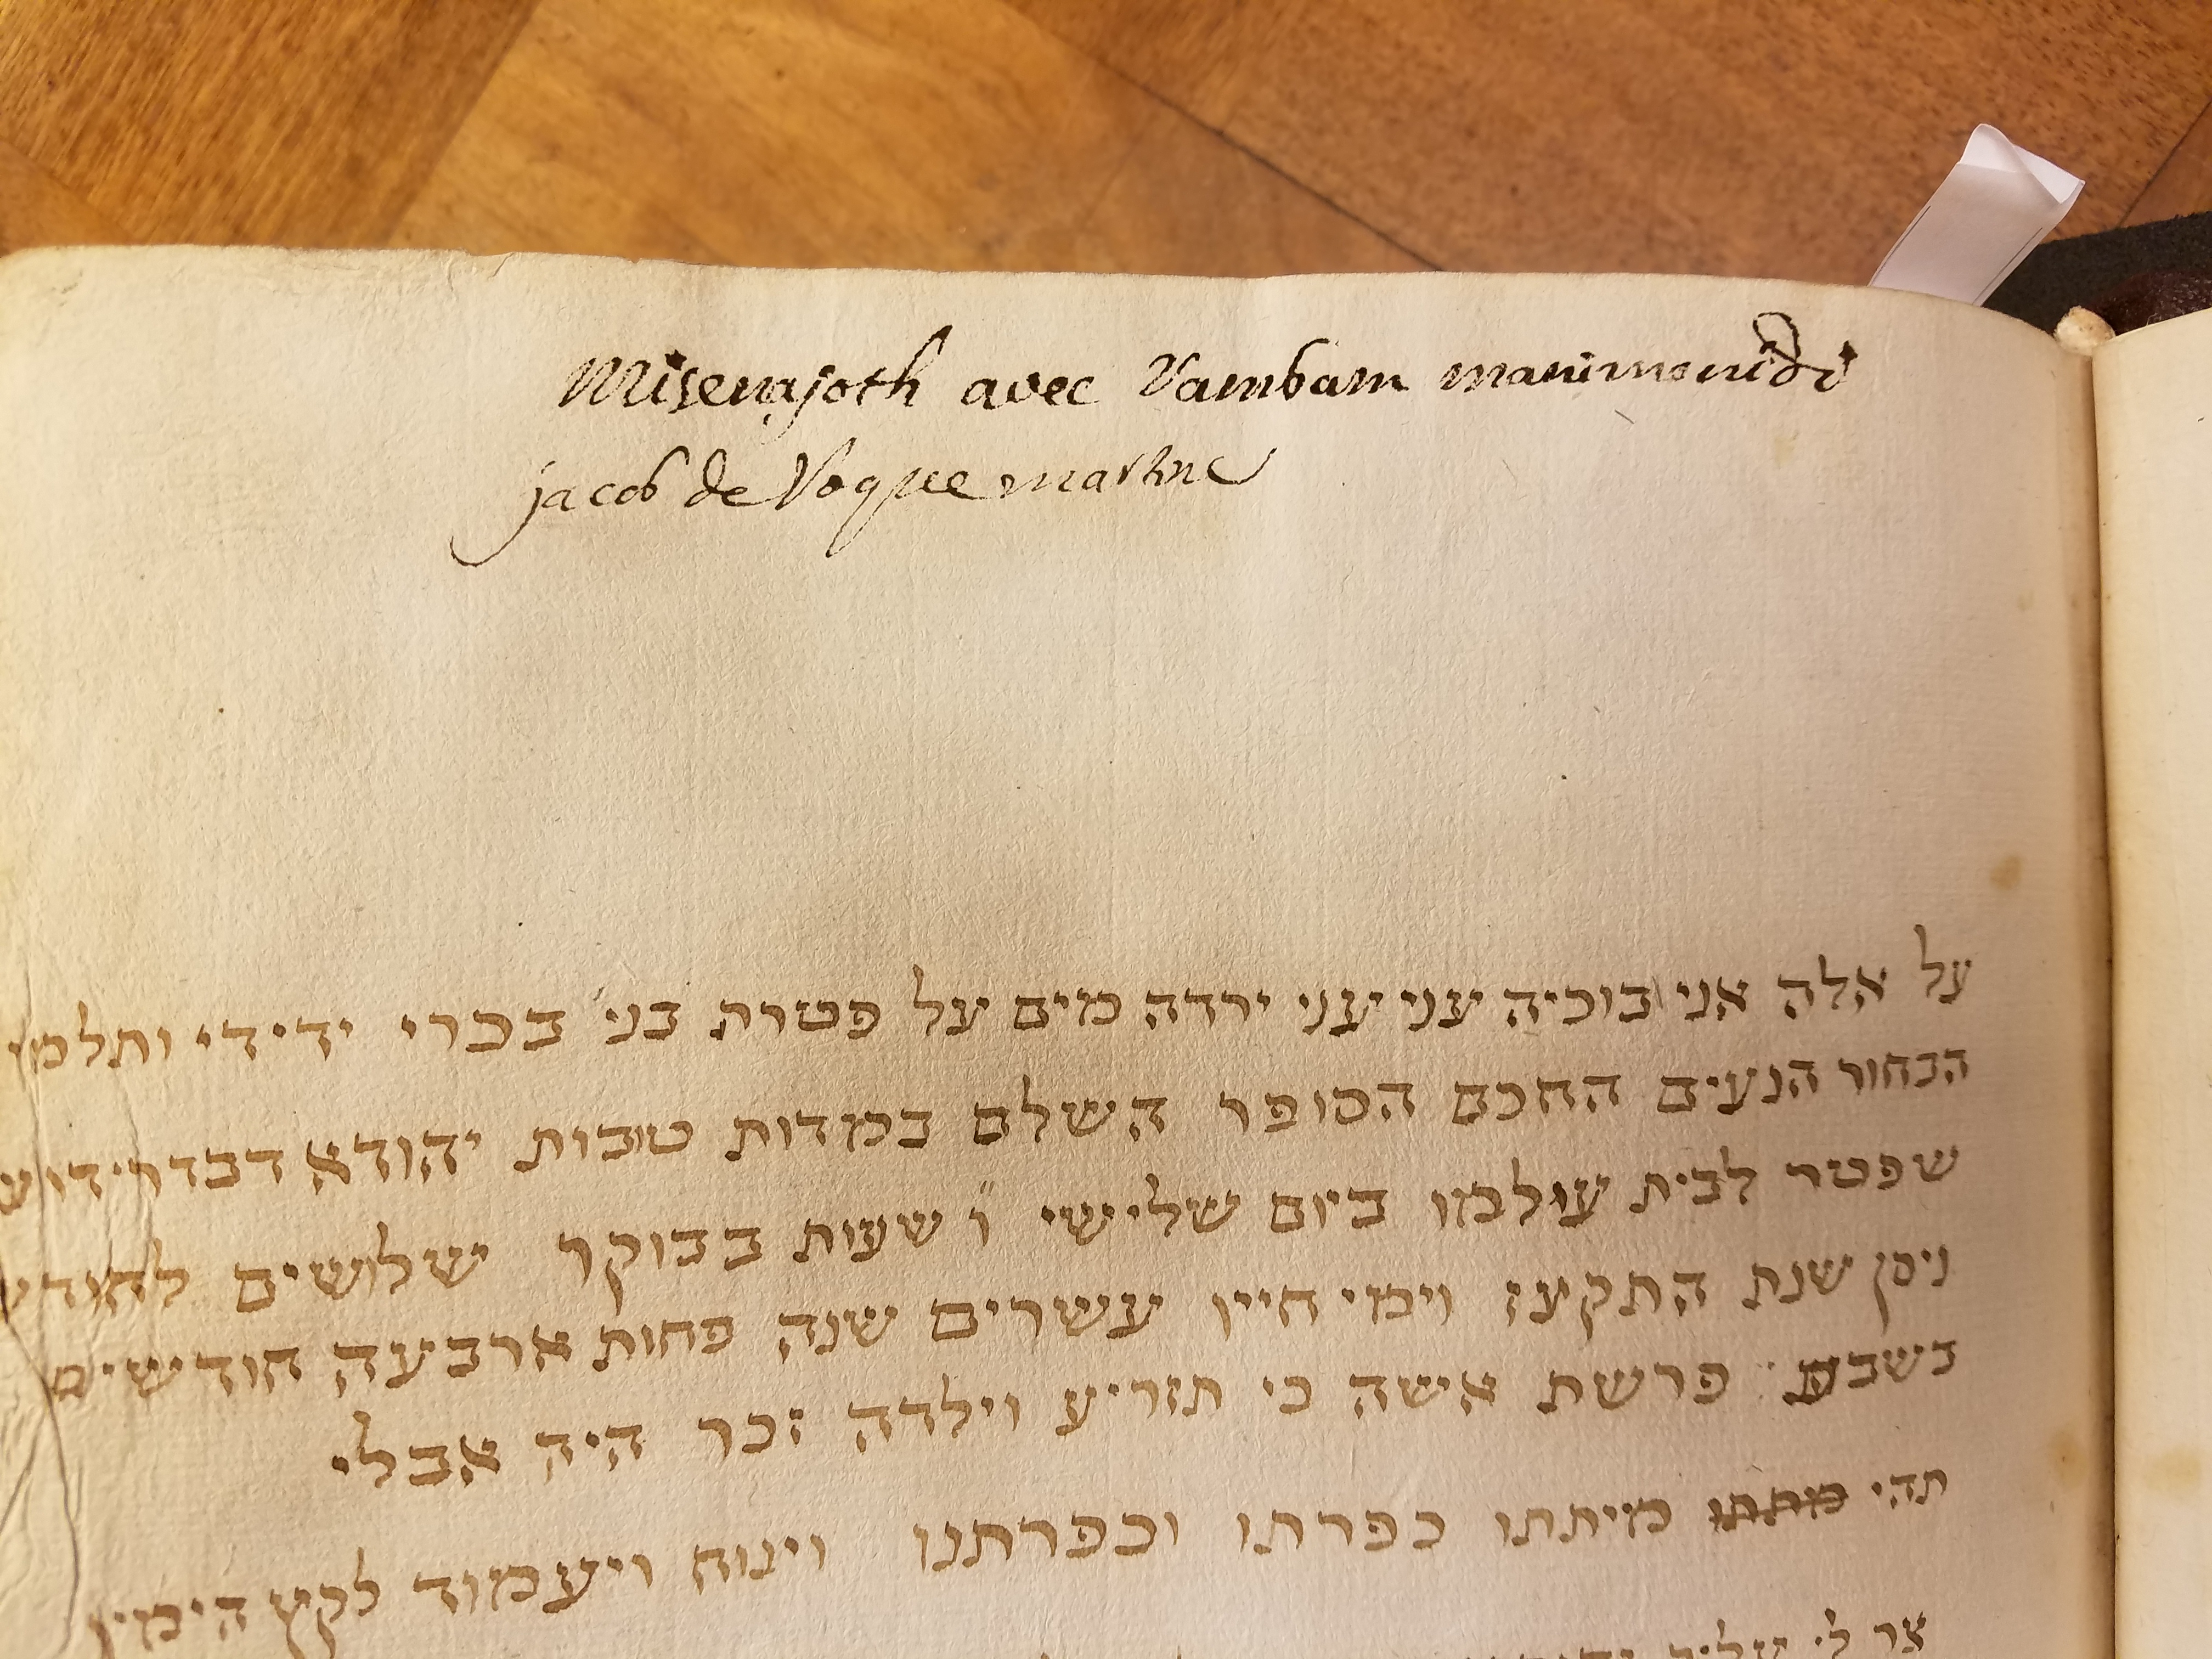 Misenajoth avec Rambam manimonide
jacob de Roquemartine
על אלה אני בוכיה עני עני ירדה מים על פטרת בני בכרי ידידי ותלמי
הבחור הנעים החכם הסופר השלם במדות טובות יהודא
שפטר לבית עולמו ביום שלישי ו״ שעות בבוקר שלושים לחודש
ניסן שנת התקעז וימי חייו עשרים שנה פחות ארבעה חודשים
בשבת פרשת אשה כי תזריע וילדה זכר היה אבלי
תהי מיתתו כפרתו וכפרתנו וינוח ויעמוד לקץ הימין
צר לי עליך